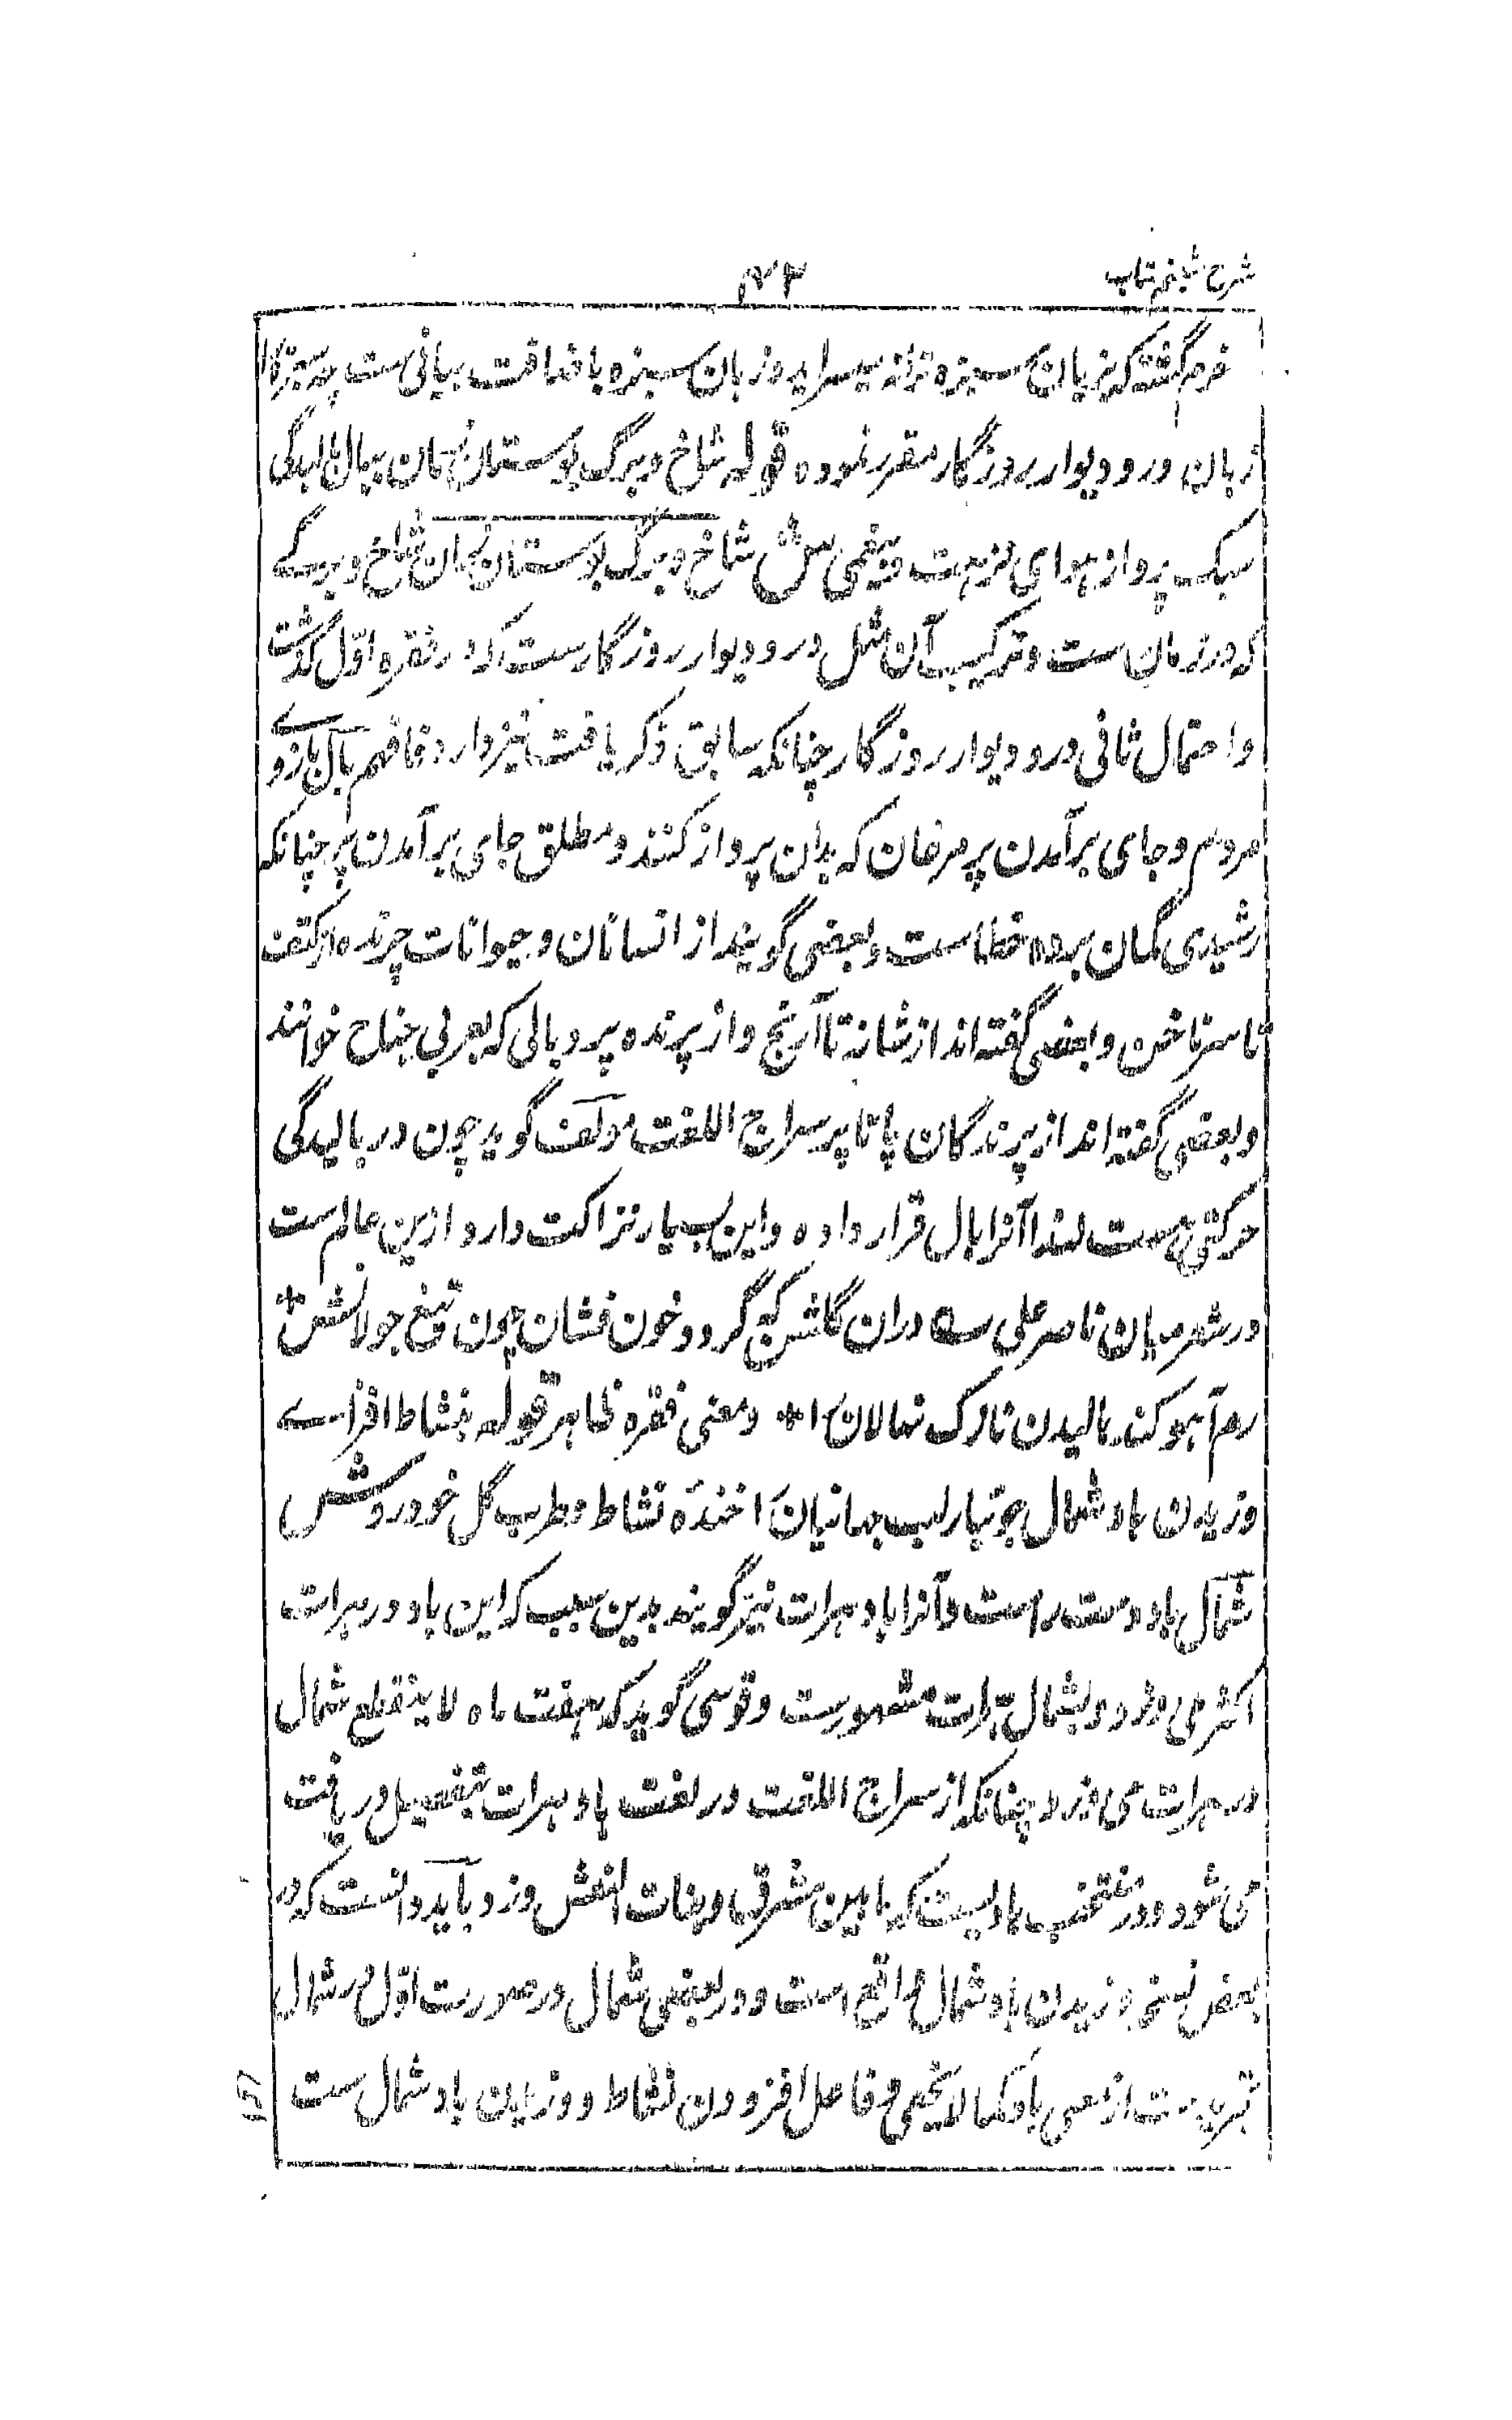 شرح شبنم شاداب
۴۳
خرم گشته که بزبان سبزه ترانه میسراید و زبان سبزه باضافت بیانی ست چه سبزه را
زبان در و دیوار روزگار مقرر نموده قوله شاخ و برگ بوستان زمان ببال بالیدگی
سبک پرواز هوای نزهت و خرمی ش شاخ و برگ بوستان زمان شاخ و برگے
که در زمان ست و ترکیب آن مثل در و دیوار روزگارست که در فقره اول گذشت
و احتمال ثانی در و دیوار روزگار چنانکه سابق ذکر یافت نیز دارد فافهم بال بازوے
مردم و جای برآمدن پر مرغان که بدان پرواز کنند و مطلق جای برآمدن پر چنانکه
رشیدی گمان برده خطاست و بعضی گویند از انسانان و حیوانات چرنده از کتف
تا سر ناخن و بعضی گفته اند از شانه تا آرنج و از پرنده پر و بالی که بعربی جناح خوانند
و بعضی گفته اند از پرندگان پا تا پر سراج اللغت مؤلف گوید چون در بالیدگی
حرکتی هست لهذا آنرا بال قرار داده و این بسیار نزاکت دارد ازین عالم ست
در شعر میان ناصر علی ؎ دران گلشن که گردد خون فشان چون تیغ جولانش *
رم آهو کند بالیدن نازک نهالان را * و معنی فقره ظاهر قوله بنشاط افزاے
وزیدن باد شمال جوئبار لب جهانیان را خنده نشاط و طرب گل خود روش ش
شمال باد دست راست و آنرا باد هرات نیز گویند بدین سبب که این باد در هرات
اکثر می وزد و بشمال هرات مشهورست و قوسی گوید که هفت ماه لا ینقطع شمال
در هرات می وزد چنانکه از سراج اللغت در لغت باد هرات بتفصیل دریافت
می شود و در منتخب بادیست که مابین مشرق و بنات النعش وزد و باید دانست که در
بعض نسخ وزیدن باد شمال واقع است و در بعضی شمال در صورت اول در شمال
تجریدست از معنی باد کما لا یخفی و فاعل افزودن نشاط و وزیدن باد شمال ست